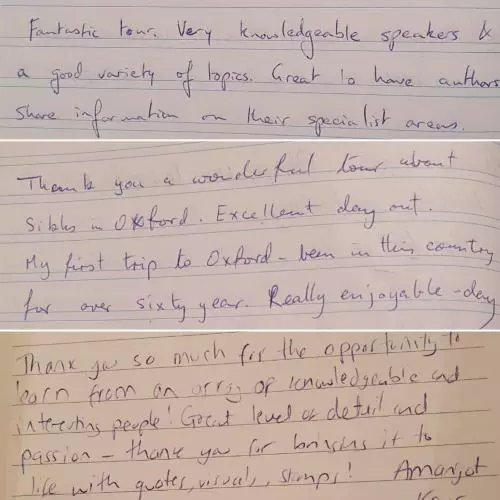 Fantastic tour. Very knowledgeable speakers &
a good variety of topics. Great to have authors
share information on their specialist areas.
Thank you a wonderful tour about
Sikhs in Oxford. Excellent day out.
My first trip to Oxford - been in this country
for over sixty year. Really enjoyable - day
Thank you so much for the opportunity to
learn from an array of knowledgeable and
interesting people! Great level of detail and
passion - thank you for bringing it to
life with quotes, visuals, stamps! Amanjot